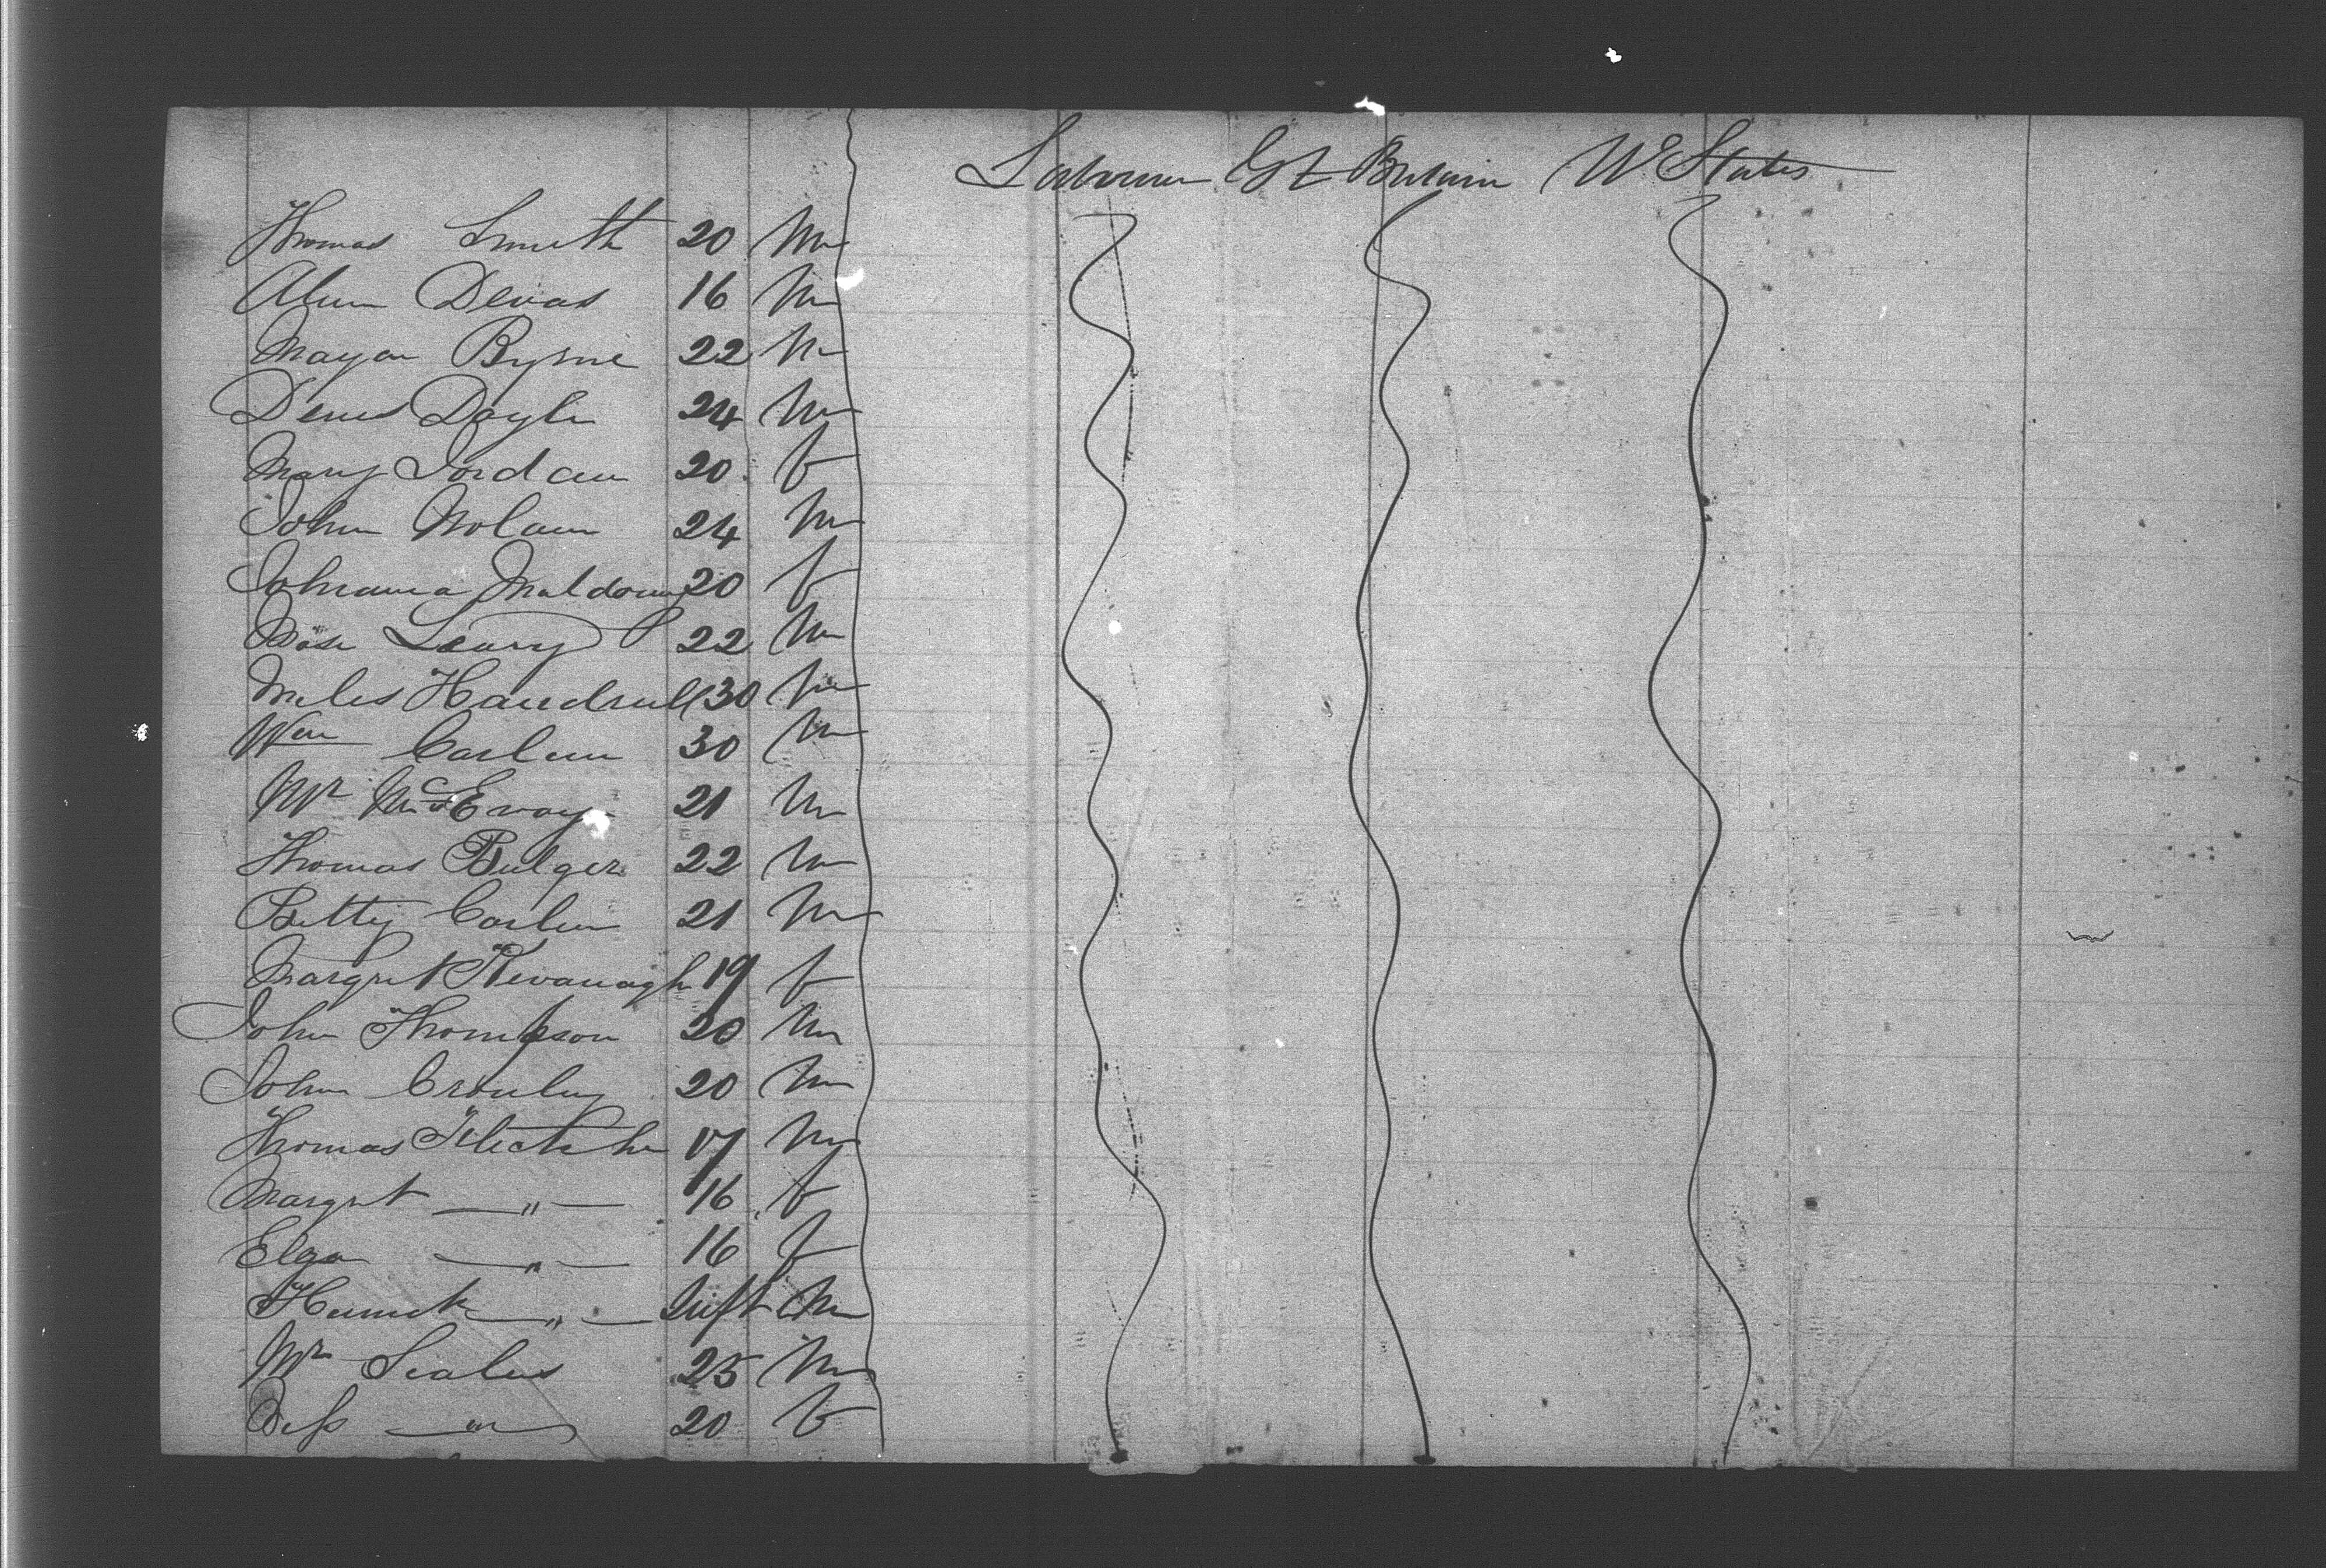 Labourer Gt Britain U. States
Thomas Smith 20 M
Devas 16 M
Byrne 22 M
Denis Doyle 24 M
Mary Jordan 20 f
John Nolan 24 M
Johanna Muldowny 20 f
Leary 22 M
Miles 30 M
Wm Carlin 30 M
Mr McEvoy 21 M
Thomas Bulger 22 M
Betty Carlin 21 M
Margret Kevanagh 19 f
John Thompson 20 M
John Crowley 20 M
Thomas 17 M
Margret — " — 16 f
Eliza — " — 16 f
— " — Inft M
Mr Scales 25 M
Bess — " — 20 f